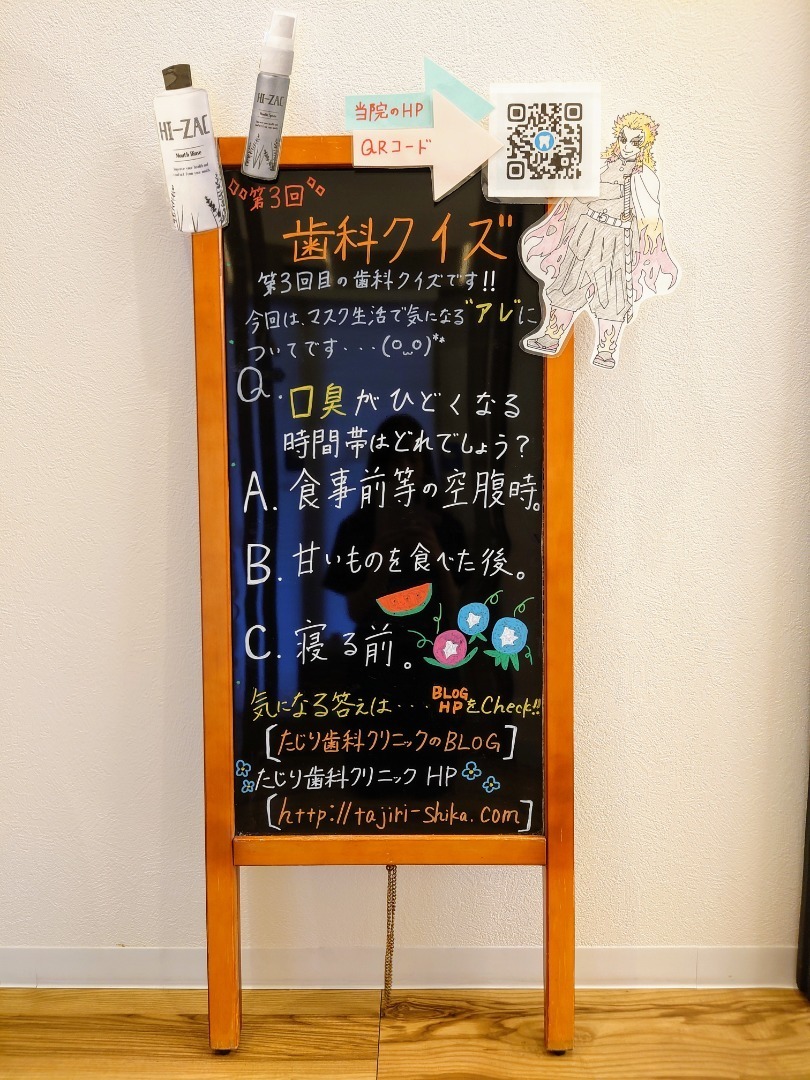 HI-ZAC
Mouth Rinse
HI-ZAC
Mouth Spray
当院のHP
QRコード
第3回
歯科クイズ
第3回目の歯科クイズです!!
今回は、マスク生活で気になる"アレ"に
ついてです・・・(o_o)**
Q.口臭がひどくなる
時間帯はどれでしょう?
A.食事前等の空腹時。
B.甘いものを食べた後。
C.寝る前。
気になる答えは・・・BLOG HPをCheck!!
[たじり歯科クリニックのBLOG]
たじり歯科クリニック HP
[http://tajiri-shika.com]